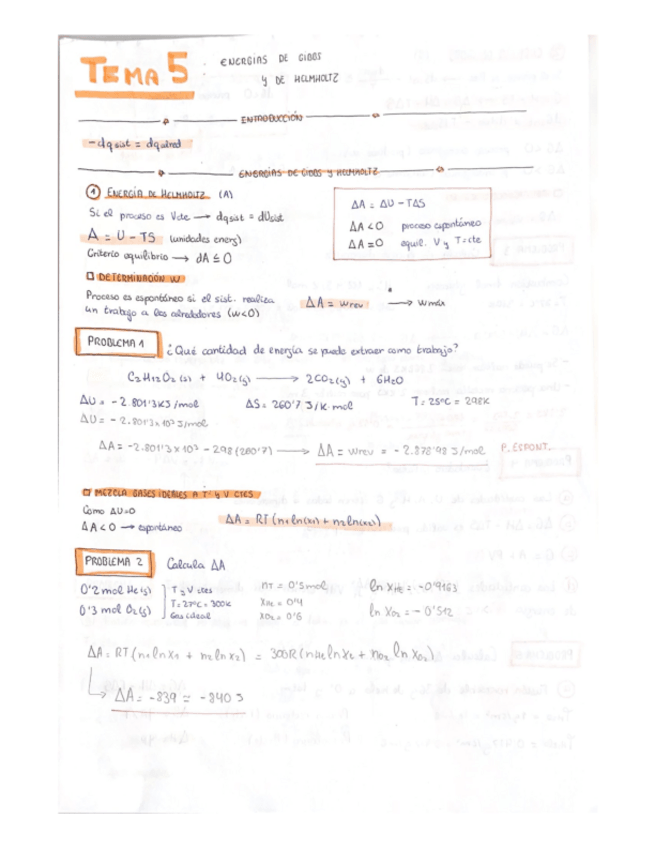 TEMA 5
ENERGÍAS DE GIBBS
Y DE HELMHOLTZ
ENTRODUCCIÓN
-dqsist = dqalred
ENERGÍAS DE GIBBS Y HELMHOLTZ
① ENERGÍA DE HELMHOLTZ (A)
Si el proceso es Vcte → dqsist = dUsist
A = U - TS (unidades energ)
Criterio equilibrio → dA ≤ 0
ΔA = ΔU - TΔS
ΔA < 0 proceso espontáneo
ΔA = 0 equil. V y T=cte
□ DETERMINACIÓN W
Proceso es espontáneo si el sist. realiza
un trabajo a los alrededores (w<0)
ΔA = wrev → wmáx
PROBLEMA 1
¿Qué cantidad de energía se puede extraer como trabajo?
C2H12O2(s) + 4O2(g) → 2CO2(g) + 6H2O
ΔU = -2.801'3 KJ/mol ΔS = 260'7 J/K·mol T = 25ºC = 298K
ΔU = -2.801'3×10³ J/mol
ΔA = -2.801'3×10³ - 298(260'7) → ΔA = wrev = -2.878'98 J/mol P. ESPONT.
□ MEZCLA GASES IDEALES A Tª Y V CTES
Como ΔU=0
ΔA<0 → espontáneo
ΔA = RT(n1ln(x1) + n2ln(x2))
PROBLEMA 2
Calcula ΔA
0'2 mol He(g)
0'3 mol O2(g)
T y V ctes
T = 27ºC = 300K
Gas ideal
nT = 0'5mol
xHe = 0'4
xO2 = 0'6
ln xHe = -0'9163
ln xO2 = -0'512
ΔA = RT(n1lnx1 + n2lnx2) = 300R(nHelnxHe + nO2lnxO2)
ΔA = -839 ≃ -840 J